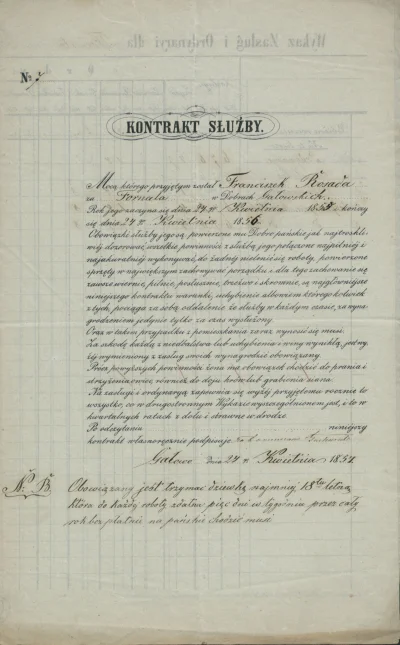 Wykaz Zasług i Ordynaryi dla
No
KONTRAKT SŁUŻBY.
Mocą którego przyjętym został Franciszek
za Fornala w Dobrach Gałowskich.
Rok Jego zaczyna się dnia 24 go Kwietnia 1855, kończy
się dnia 24 go Kwietnia 1856.
Obowiązki służby jego są, powierzone mu Dobro pańskie jak najtroskli-
wiéj dozorować, wszelkie powinności z służbą jego połączone najpilniéj i
najakuratniéj wykonywać, do żadnéj nielenić się roboty, powierzone
sprzęty w największym zachowywać porządku i dla tego zachowanie się
zawsze wiernie, pilnie, posłusznie, trzeźwo i skromnie, są najgłówniejsze
niniejszego kontraktu warunki, uchybienie albowiem któregokolwiek
z tych, pociąga za sobą oddalenie ze służby w każdym czasie, za wyna-
grodzeniem jedynie tylko za czas wysłużony.
Oraz w takim przypadku z pomieszkania zaraz wynosić się musi.
Za szkodę każdą z niedbalstwa lub uchybienia z winy wynikłą, jedny,
téj wymienionéj z zasług swoich wynagrodzić obowiązany.
Prócz powyższych powinności żona ma obowiązek chodzić do prania i
strzyżenia owiec, również do doju krów lub grabienia siana.
Na zasługi i ordynaryą zapewnia się wyżéj przyjętemu rocznie to
wszystko, co w drugostronnym Wykazie wyszczególnionem jest, i to w
kwartalnych ratach z dołu i drzewne w drodze
Po odczytaniu niniejszy
kontrakt własnoręcznie podpisuje
Gałowo dnia 24 go Kwietnia 1854.
N. B.
Obowiązany jest trzymać dziewkę najmniéj 18to letnią
która do każdéj roboty zdatna pięć dni w tygodniu przez cały
rok bez płatnie na pańskie chodzić musi